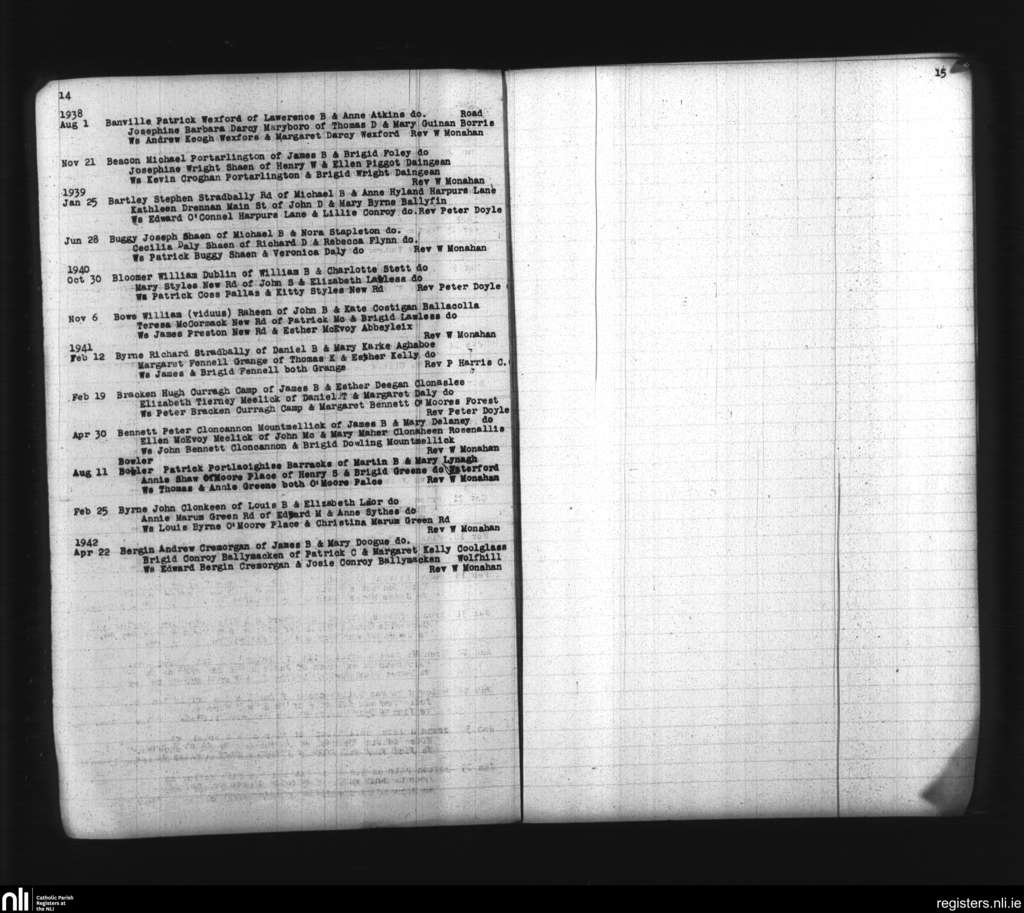 14
15
1938
Road
Aug 1 Banville Patrick Wexford of Lawerence B & Anne Atkins do.
Josephine Barbara Darcy Maryboro of Thomas D & Mary Guinan Borris
Ws Andrew Keogh Wexfors & Margaret Darcy Wexford Rev W Monahan
Nov 21 Beacon Michael Portarlington of James B & Brigid Foley do
Josephine Wright Shaen of Henry W & Ellen Piggot Daingean
Ws Kevin Croghan Portarlington & Brigid Wright Daingean
Rev W Monahan
1939
Jan 25 Bartley Stephen Stradbally Rd of Michael B & Anne Hyland Harpurs Lane
Kathleen Drennan Main St of John D & Mary Byrne Ballyfin
Ws Edward O'Connel Harpurs Lane & Lillie Conroy do.Rev Peter Doyle
Jun 28 Buggy Joseph Shaen of Michael B & Nora Stapleton do.
Cecilia Daly Shaen of Richard D & Rebecca Flynn do.
Ws Patrick Buggy Shaen & Veronica Daly do Rev W Monahan
1940
Oct 30 Bloomer William Dublin of William B & Charlotte Stett do
Mary Styles New Rd of John S & Elizabeth Lawless do
Ws Patrick Coss Pallas & Kitty Styles New Rd Rev Peter Doyle
Nov 6 Bowe William (viduus) Raheen of John B & Kate Costigan Ballacolla
Teresa McCormack New Rd of Patrick Mc & Brigid Lawless do
Ws James Preston New Rd & Esther McEvoy Abbeyleix
Rev W Monahan
1941
Feb 12 Byrne Richard Stradbally of Daniel B & Mary Karke Aghaboe
Margaret Fennell Grange of Thomas K & Esther Kelly do
Ws James & Brigid Fennell both Grange Rev P Harris C.
Feb 19 Bracken Hugh Curragh Camp of James B & Esther Deegan Clonaslee
Elizabeth Tierney Meelick of Daniel T & Margaret Daly do
Ws Peter Bracken Curragh Camp & Margaret Bennett O'Moores Forest
Rev Peter Doyle
Apr 30 Bennett Peter Cloncannon Mountmellick of James B & Mary Delaney do
Ellen McEvoy Meelick of John Mc & Mary Maher Clonaheen Rosenallis
Ws John Bennett Cloncannon & Brigid Dowling Mountmellick
Rev W Monahan
Bowler
Aug 11 Bowler Patrick Portlaoighise Barracks of Martin B & Mary Lynagh
Annie Shaw O'Moore Place of Henry S & Brigid Greene do Waterford
Ws Thomas & Annie Greene both O'Moore Palce Rev W Monahan
Feb 25 Byrne John Clonkeen of Louis B & Elizabeth Lalor do
Annie Marum Green Rd of Edward M & Anne Sythes do
Ws Louis Byrne O'Moore Place & Christina Marum Green Rd
Rev W Monahan
1942
Apr 22 Bergin Andrew Cremorgan of James B & Mary Doogue do.
Brigid Conroy Ballymacken of Patrick C & Margaret Kelly Coolglass
Ws Edward Bergin Cremorgan & Josie Conroy Ballymacken Wolfhill
Rev W Monahan
nli
Catholic Parish
Registers at
the NLI
registers.nli.ie